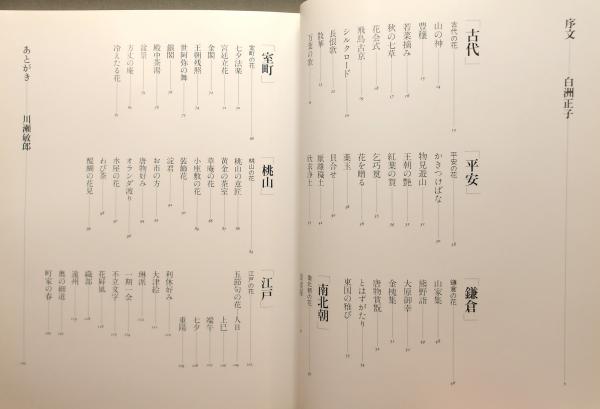 序文 白洲正子
「古代」
古代の花
山の神
豊穣
若菜摘み
秋の七草
花会式
飛鳥古京
シルクロード
長恨歌
散華
万葉の歌
「平安」
平安の花
かきつけばな
物見遊山
王朝の艶
紅葉の賀
乞巧奠
花を贈る
薬玉
貝合せ
厭離穢土
欣求浄土
「鎌倉」
鎌倉の花
山家集
熊野詣
大原御幸
金槐集
唐物賞翫
とはずがたり
東国の雅び
「南北朝」
南北朝の花
「室町」
室町の花
七夕法楽
宮廷立花
金閣
王朝残照
世阿弥の舞
銀閣
殿中茶湯
盆景
方丈の庵
冷えたる花
「桃山」
桃山の花
桃山の意匠
黄金の茶室
草庵の花
小座敷の花
装飾花
淀君
お市の方
唐物好み
オランダ渡り
水屋の花
わび茶
醍醐の花見
「江戸」
江戸の花
五節句の花 人日
上巳
端午
七夕
重陽
利休好み
大津絵
琳派
一期一会
不立文字
花屛風
織部
遠州
奥の細道
町家の春
あとがき 川瀬敏郎